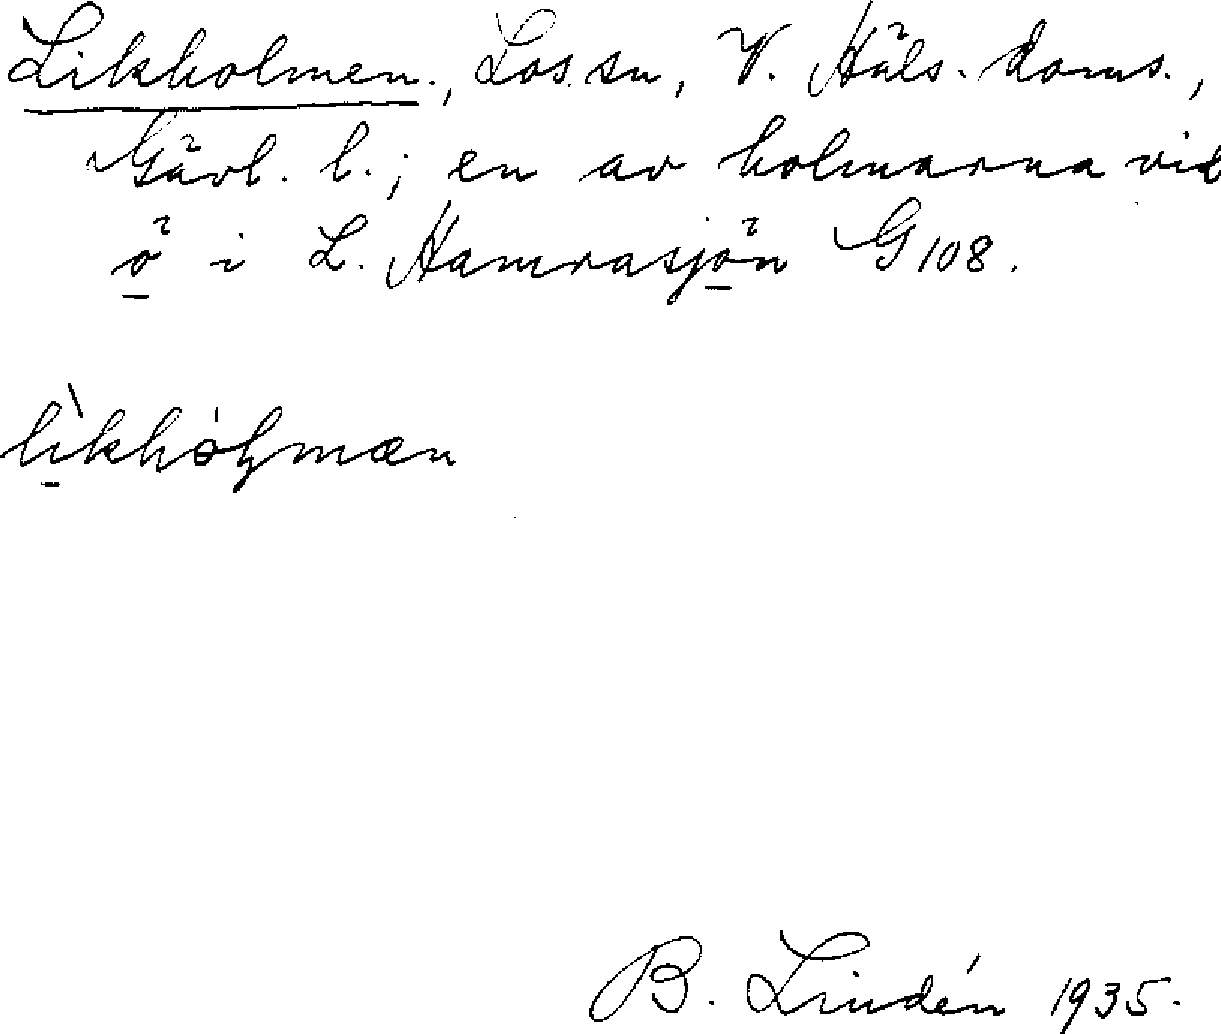 Likholmen., Los sn, V. Häls. doms.,
Gävl. l.; en av holmarna vid
ö i L. Hamrasjön G 108.
lìkhòḷmæn
B. Lindén 1935.